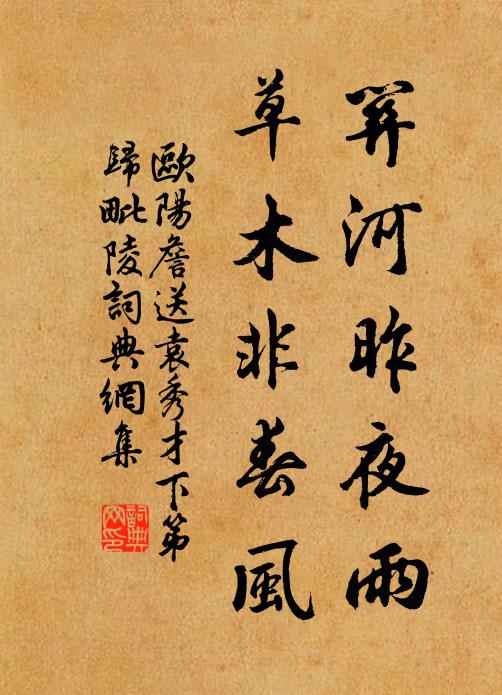 關河昨夜雨
草木非春風
歐陽詹送袁秀才下第
歸毗陵詞典網集
詞典
网印